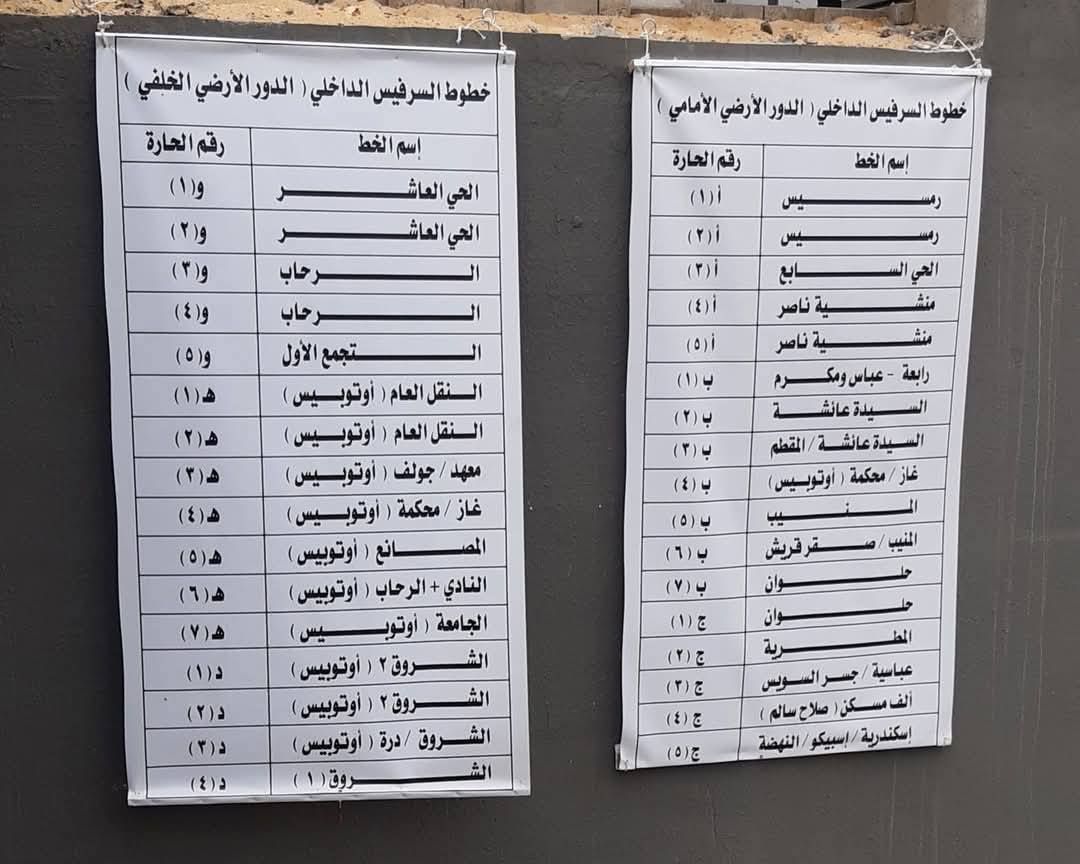 خطوط السرفيس الداخلي ( الدور الأرضي الأمامي )
إسم الخط رقم الحارة
رمسيس أ(١)
رمسيس أ(٢)
الحي السابع أ(٣)
منشية ناصر أ(٤)
منشية ناصر أ(٥)
رابعة - عباس ومكرم ب(١)
السيدة عائشة ب(٢)
السيدة عائشة / المقطم ب(٣)
غاز / محكمة (أوتوبيس) ب(٤)
المنيب ب(٥)
المنيب / صقر قريش ب(٦)
حلوان ب(٧)
حلوان ج(١)
المطرية ج(٢)
عباسية / جسر السويس ج(٣)
ألف مسكن ( صلاح سالم ) ج(٤)
إسكندرية / إسبيكو / النهضة ج(٥)
خطوط السرفيس الداخلي ( الدور الأرضي الخلفي )
إسم الخط رقم الحارة
الحي العاشر و(١)
الحي العاشر و(٢)
الرحاب و(٣)
الرحاب و(٤)
التجمع الأول و(٥)
النقل العام ( أوتوبيس ) هـ(١)
النقل العام ( أوتوبيس ) هـ(٢)
معهد / جولف ( أوتوبيس ) هـ(٣)
غاز / محكمة ( أوتوبيس ) هـ(٤)
المصانع ( أوتوبيس ) هـ(٥)
النادي + الرحاب ( أوتوبيس ) هـ(٦)
الجامعة ( أوتوبيس ) هـ(٧)
الشروق ٢ ( أوتوبيس ) د(١)
الشروق ٢ ( أوتوبيس ) د(٢)
الشروق / درة ( أوتوبيس ) د(٣)
الشروق ( ١ ) د(٤)